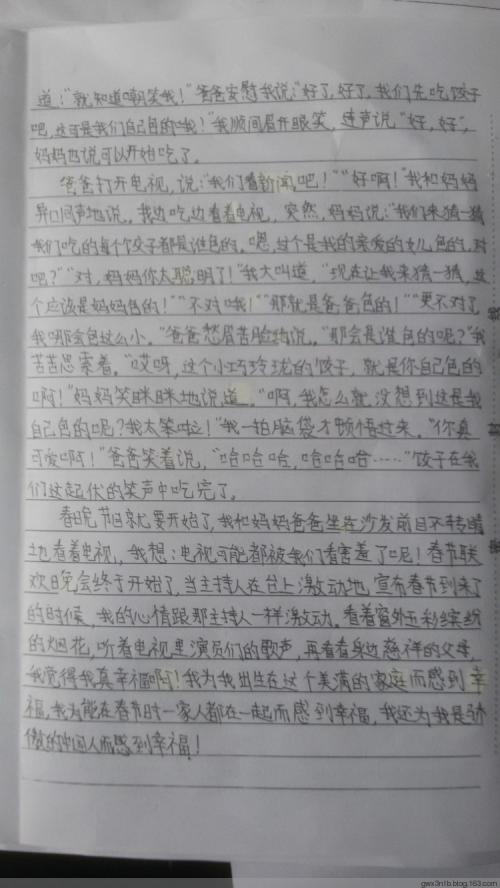 道：“就知道嘲笑我！”爸爸安慰我说：“好了，好了，我们先吃饺子
吧，这可是我们自己包的哦！”我顺间眉开眼笑，连声说“好，好”，
妈妈也说可以开始吃了。
爸爸打开电视，说：“我们看新闻吧！”“好啊！”我和妈妈
异口同声地说。我边吃边看着电视，突然，妈妈说：“我们来猜一猜
我们吃的每个饺子都是谁包的，嗯，这个是我的亲爱的女儿包的，对
吧？”“对，妈妈你太聪明了！”我大叫道，“现在让我来猜一猜，这
个应该是妈妈包的！”“不对哦！”“那就是爸爸包的！”“更不对了，
我哪会包这么小。”爸爸愁眉苦脸地说。“那会是谁包的呢？”我
苦苦思索着。“哎呀，这个小巧玲珑的饺子，就是你自己包的
啊！”妈妈笑眯眯地说道。“啊，我怎么就没想到这是我
自己包的呢？我太笨啦！”我一拍脑袋才顿悟过来。“你真
可爱啊！”爸爸笑着说，“哈哈哈，哈哈哈哈……”饺子在我
们这起伏的笑声中吃完了。
春晚节目就要开始了，我和妈妈爸爸坐在沙发前目不转睛
地看着电视，我想：电视可能都被我们看害羞了呢！春节联
欢晚会终于开始了，当主持人在台上激动地宣布春节到来了
的时候，我的心情跟那主持人一样激动。看着窗外五彩缤纷
的烟花，听着电视里演员们的歌声，再看看身边慈祥的父母，
我觉得我真幸福啊！我为我出生在这个美满的家庭而感到幸
福，我为能在春节时一家人都在一起而感到幸福，我还为我是骄
傲的中国人而感到幸福！
gwx3n1b.blog.163.com